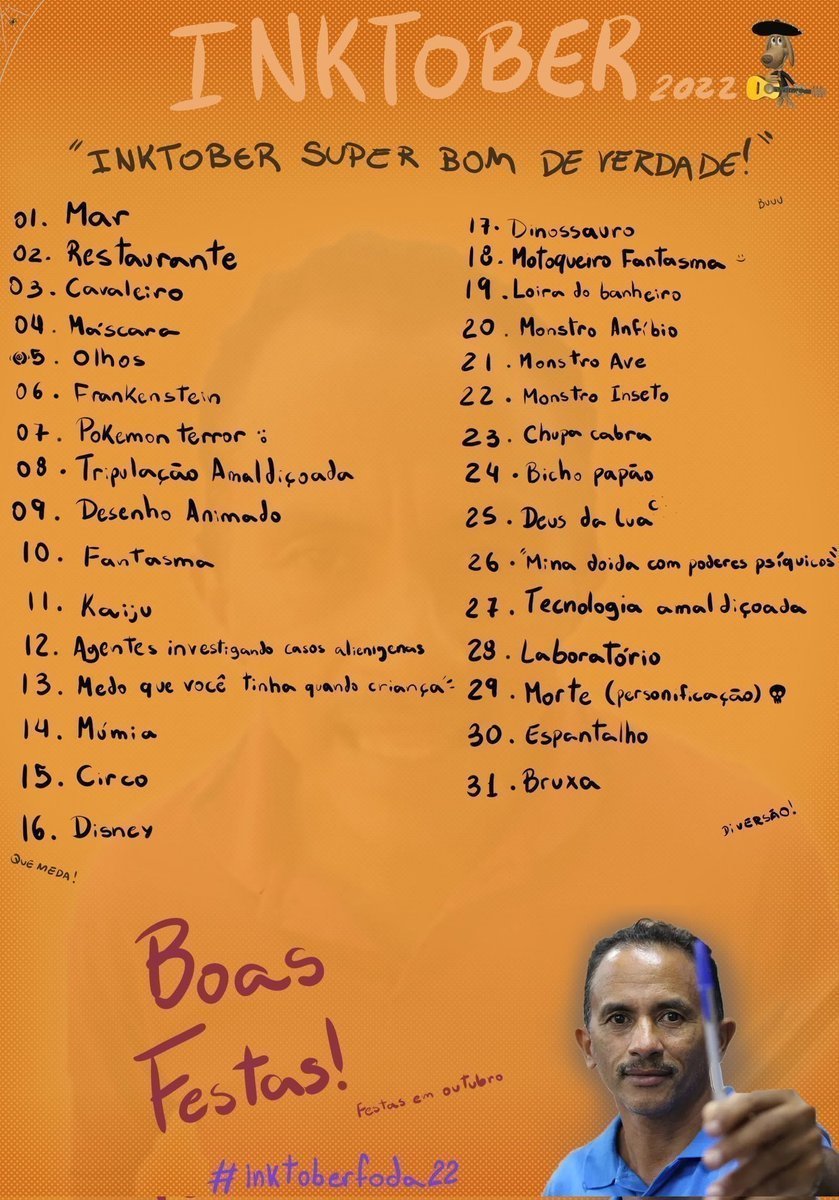 INKTOBER 2022
"INKTOBER SUPER BOM DE VERDADE!"
BUUU
01. Mar
02. Restaurante
03. Cavaleiro
04. Máscara
05. Olhos
06. Frankenstein
07. Pokemon terror :
08. Tripulação Amaldiçoada
09. Desenho Animado
10. Fantasma
11. Kaiju
12. Agentes investigando casos alienigenas
13. Medo que você tinha quando criança
14. Múmia
15. Circo
16. Disney
QUE MEDA!
17. Dinossauro
18. Motoqueiro Fantasma
19. Loira do banheiro
20. Monstro Anfíbio
21. Monstro Ave
22. Monstro Inseto
23. Chupa cabra
24. Bicho papão
25. Deus da Lua
26. "Mina doida com poderes psíquicos"
27. Tecnologia amaldiçoada
28. Laboratório
29. Morte (personificação)
30. Espantalho
31. Bruxa
DIVERSÃO!
Boas
Festas!
Festas em outubro
#inktoberfoda22